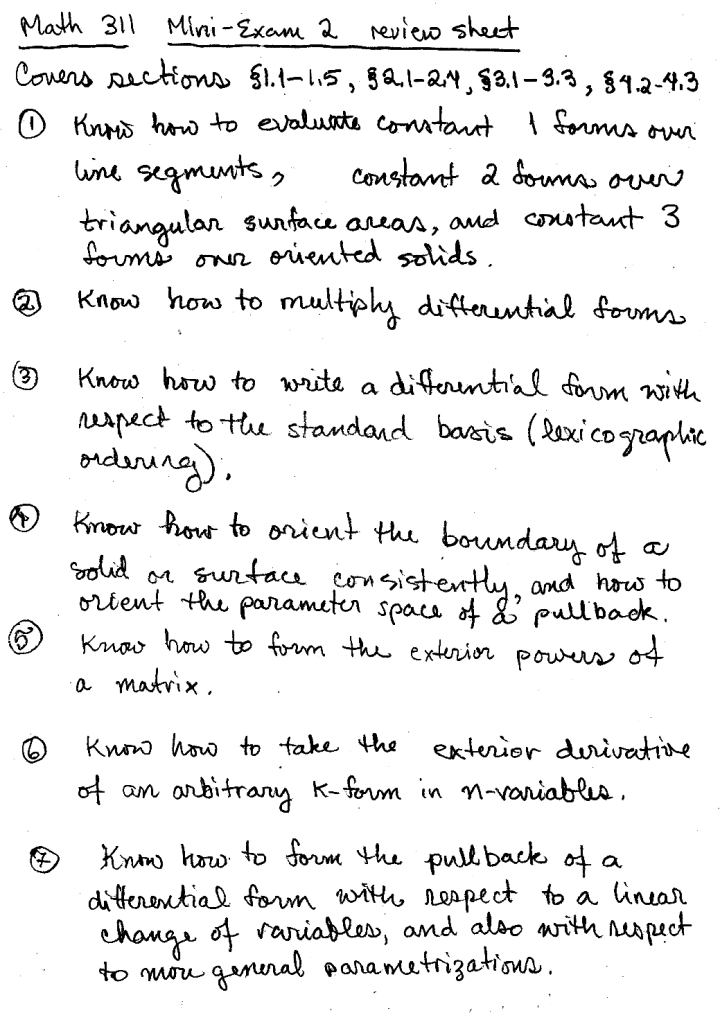 Math 311 Mini-Exam 2 review sheet
Covers sections §1.1-1.5, §2.1-2.4, §3.1-3.3, §4.2-4.3
① Know how to evaluate constant 1 forms over
line segments, constant 2 forms over
triangular surface areas, and constant 3
forms over oriented solids.
② Know how to multiply differential forms
③ Know how to write a differential form with
respect to the standard basis (lexicographic
ordering).
④ Know how to orient the boundary of a
solid or surface consistently, and how to
orient the parameter space of a pullback.
⑤ Know how to form the exterior powers of
a matrix.
⑥ Know how to take the exterior derivative
of an arbitrary k-form in n-variables.
⑦ Know how to form the pullback of a
differential form with respect to a linear
change of variables, and also with respect
to more general parametrizations.